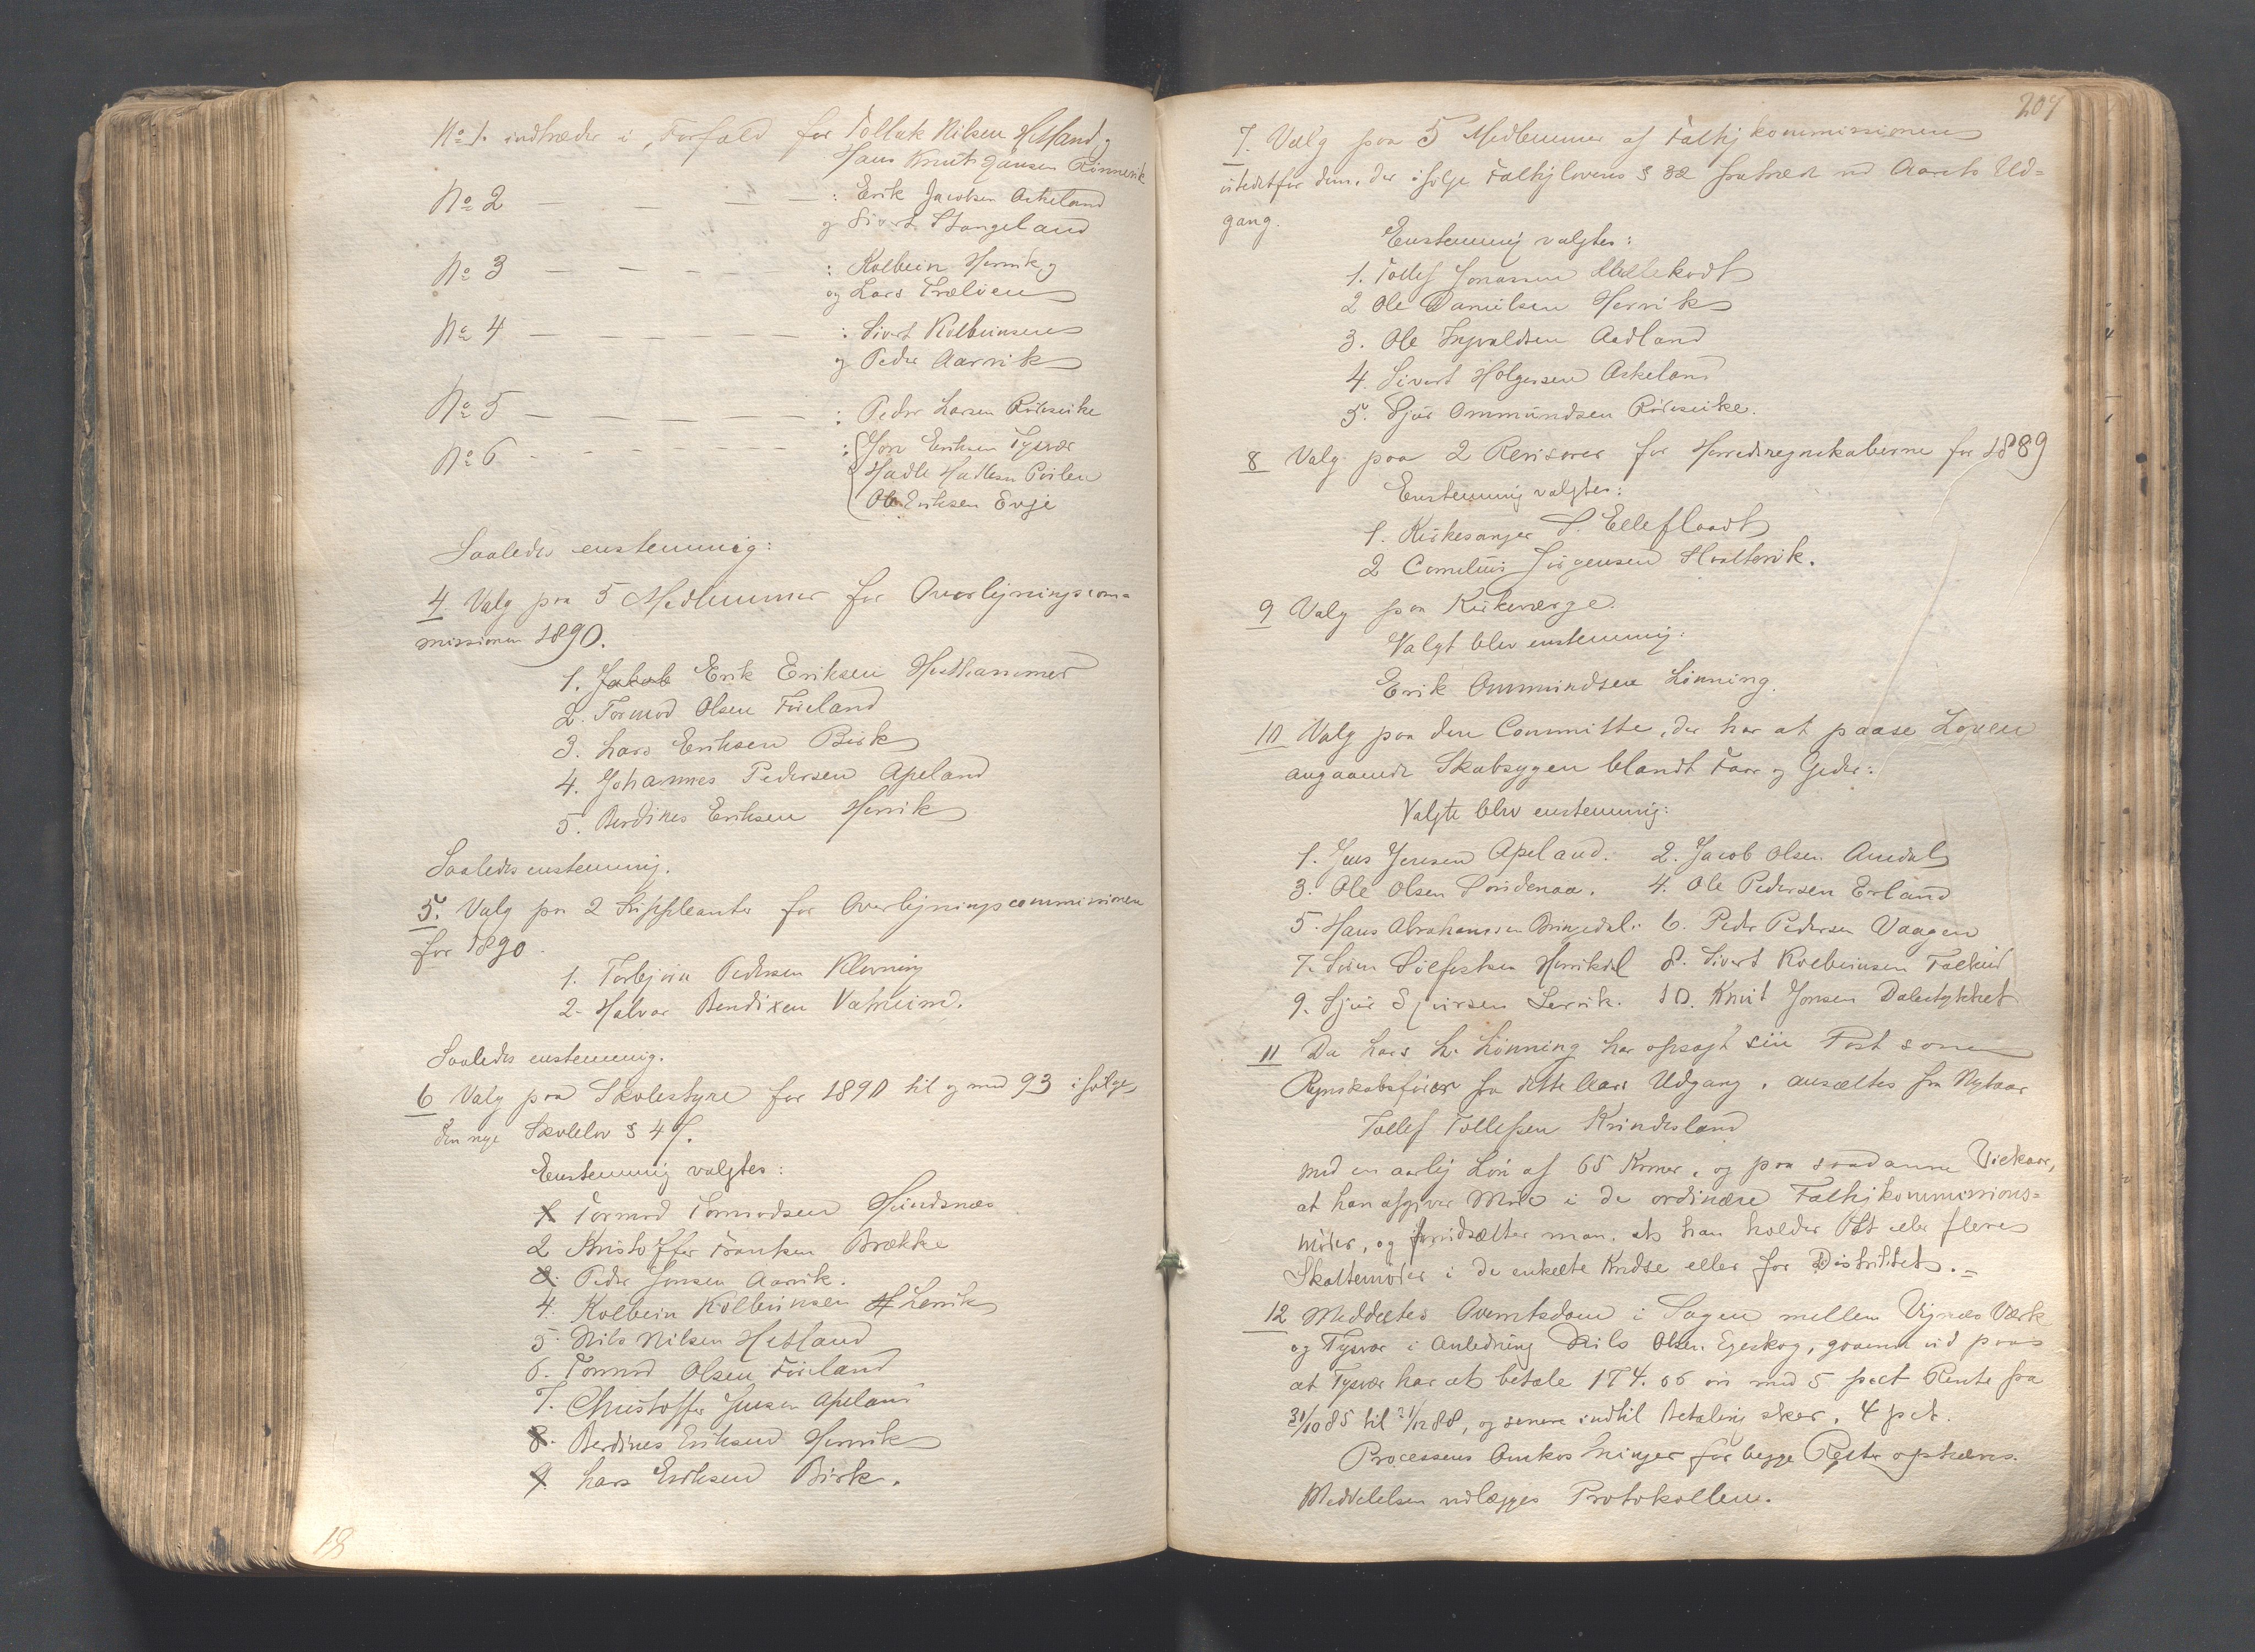 No 1. indtræder i Forfald for Tollak Nilsen Hetland,
Hans Knut Jansen Rönnevik
No 2 — — — — : Erik Jacobsen Askeland
og Sivert Stangeland
No 3 — — — — : Kolbein Hervik og
og Lars Trælvien
No 4 — — — — — : Sivert Kolbeinsen
og Peder Aarvik
No 5 — — — — : Peder Larsen Röiksvike
No 6 - - - - - - : Jon Eriksen Tysvær
Hadle Hadlesen
Ole Eriksen Evje
Saaledes enstemmig:
4 Valg paa 5 Medlemmer for Overligningscom-
missionen 1890.
1. Jakob Erik Eriksen Hesthammer
2. Tormod Olsen Füeland
3. Lars Eriksen Birk
4. Johannes Pedersen Apeland
5. Berdines Eriksen Hervik
Saaledes enstemmig.
5. Valg paa 2 Suppleanter for Overligningscommissionen
for 1890.
1. Torbjörn Pedersen Klovning
2. Halvor Bendixen Vatneim.
Saaledes enstemmig.
6 Valg paa Skolestyre for 1890 til og med 93 ifölge
den nye Skolelov § 47.
Enstemmig valgtes:
1 Tormod Tormodsen Hundsnæs
2 Kristoffer Frantsen Brække
3. Peder Jonsen Aarvik.
4. Kolbein Kolbeinsen H Lervik
5. Nils Nilsen Hetland
6. Tormod Olsen Füeland
7. Christoffer Jensen Apeland
8. Berdines Eriksen Hervik
9. Lars Eriksen Birk.
18
204
7. Valg paa 5 Medlemmer af Fattigkommissionen
istedetfor dem, der ifölge Fattiglovens § 32 fratræder ved Aarets Ud-
gang.
Enstemmig valgtes:
1. Tollef Jonassen
2 Ole Danielsen Hervik
3. Ole Ingvaldsen Aadland
4. Sivert Holgersen Askeland
5. Sjur Ommundsen Röiksvike.
8 Valg paa 2 Revisorer for Herredsregnskaberne for 1889
Enstemmig valgtes:
1. Kirkesanger S. Eelleflaadt
2 Cornelius Jörgensen Hvaltorvik.
9 Valg paa Kirkeværge.
Valgt blev enstemmig:
Erik Ommundsen Lönning.
10 Valg paa den Committe, der har at paase Loven
angaaende Skabsygen blandt Faar og Geder:
Valgte blev enstemmig:
1. Jens Jensen Apeland. 2. Jacob Olsen Amdal
3. Ole Olsen Söndenaa. 4. Ole Pedersen Erland
5. Hans Abrahamsen Bringedal. 6. Peder Pedersen Vaagen
7. Sören Sölfestsen Hervikdal 8. Sivert Kolbeinsen Falkeid
9. Sjur Sjursen Lervik. 10. Knut Jonsen Dalestykket
11 Da Lars L. Lönning har opsagt sin Post som
Regnskabsförer fra dette Aars Udgang, ansættes fra Nytaar
Tollef Tollefsen Krindesland
med en aarlig Lön af 65 Kroner, og paa saadanne Vilkaar,
at han afgiver Möde i de ordinære Fattigkommissions-
möder, og forudsætter man, at han holder Et eller flere
Skattemöder i de enkelte Kredse eller for Distriktet. =
12 Meddeeltes Overretsdom i Sagen mellem Vignæs Værk
og Tysvær i Anledning Nils Olsen Egeskog, gaaende ud paa
at Tysvær har at betale 174.06 öre med 5 pcct Rente fra
31/10 85 til 31/12 88, og senere indtil Betaling sker, 4 pct.
Processens Omkostninger for begge Retter ophæves.
Meddelelsen vedlægges Protokollen.